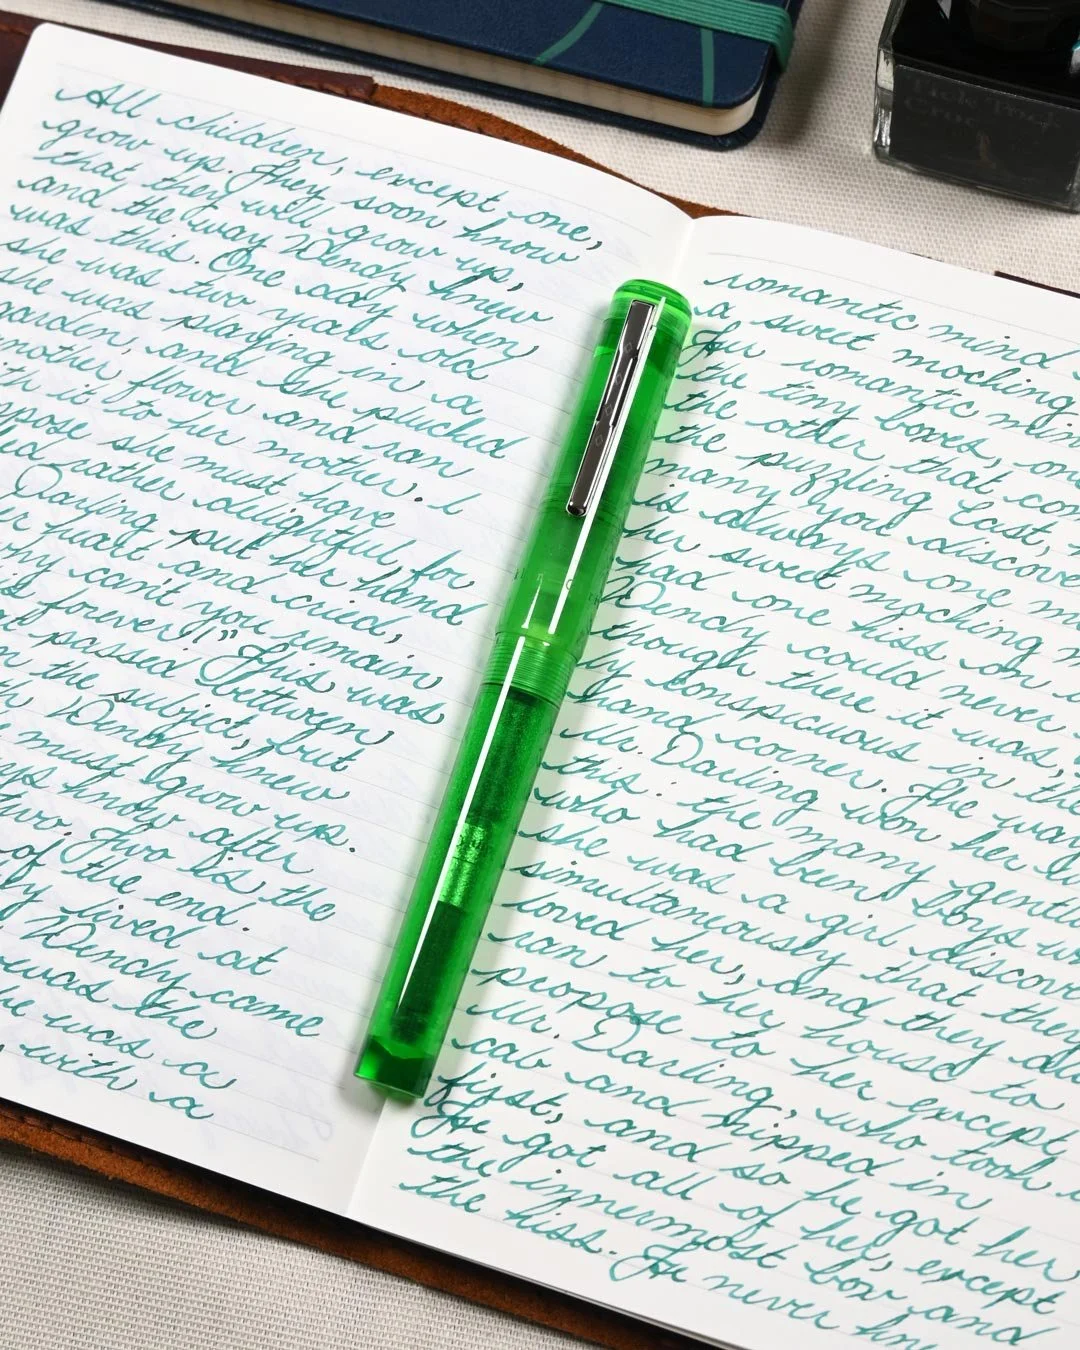 All children, except one,
grow up. They soon know
that they will grow up,
and the way Wendy knew
was this. One day when
she was two years old
she was playing in a
garden, and she plucked
nother flower and ran
ith it to her mother. I
ppose she must have
ked rather delightful, for
Darling put her hand
r heart and cried,
why can't you remain
is forever!" This was
at passed between
n the subject, but
th Wendy knew
e must grow up.
ays know after
two. Two is the
of the end.
ly lived at
Wendy came
was the
he was a
with a
romantic mind
a sweet mocking
Her romantic min
the tiny boxes, on
the other that com
the puzzling East,
many you discove
is always one m
her sweet mocking m
had one kiss on
Wendy could never
though there it was,
ly conspicuous in the
hand corner. The way
Mr. Darling won her
this: the many gentl
who had been boys w
she was a girl discov
simultaneously that they
loved her, and they al
ran to her house to
propose to her except
Mr. Darling, who took
cab and nipped in
first, and so he got her
He got all of her, except
the innermost box and
the kiss. He never kn